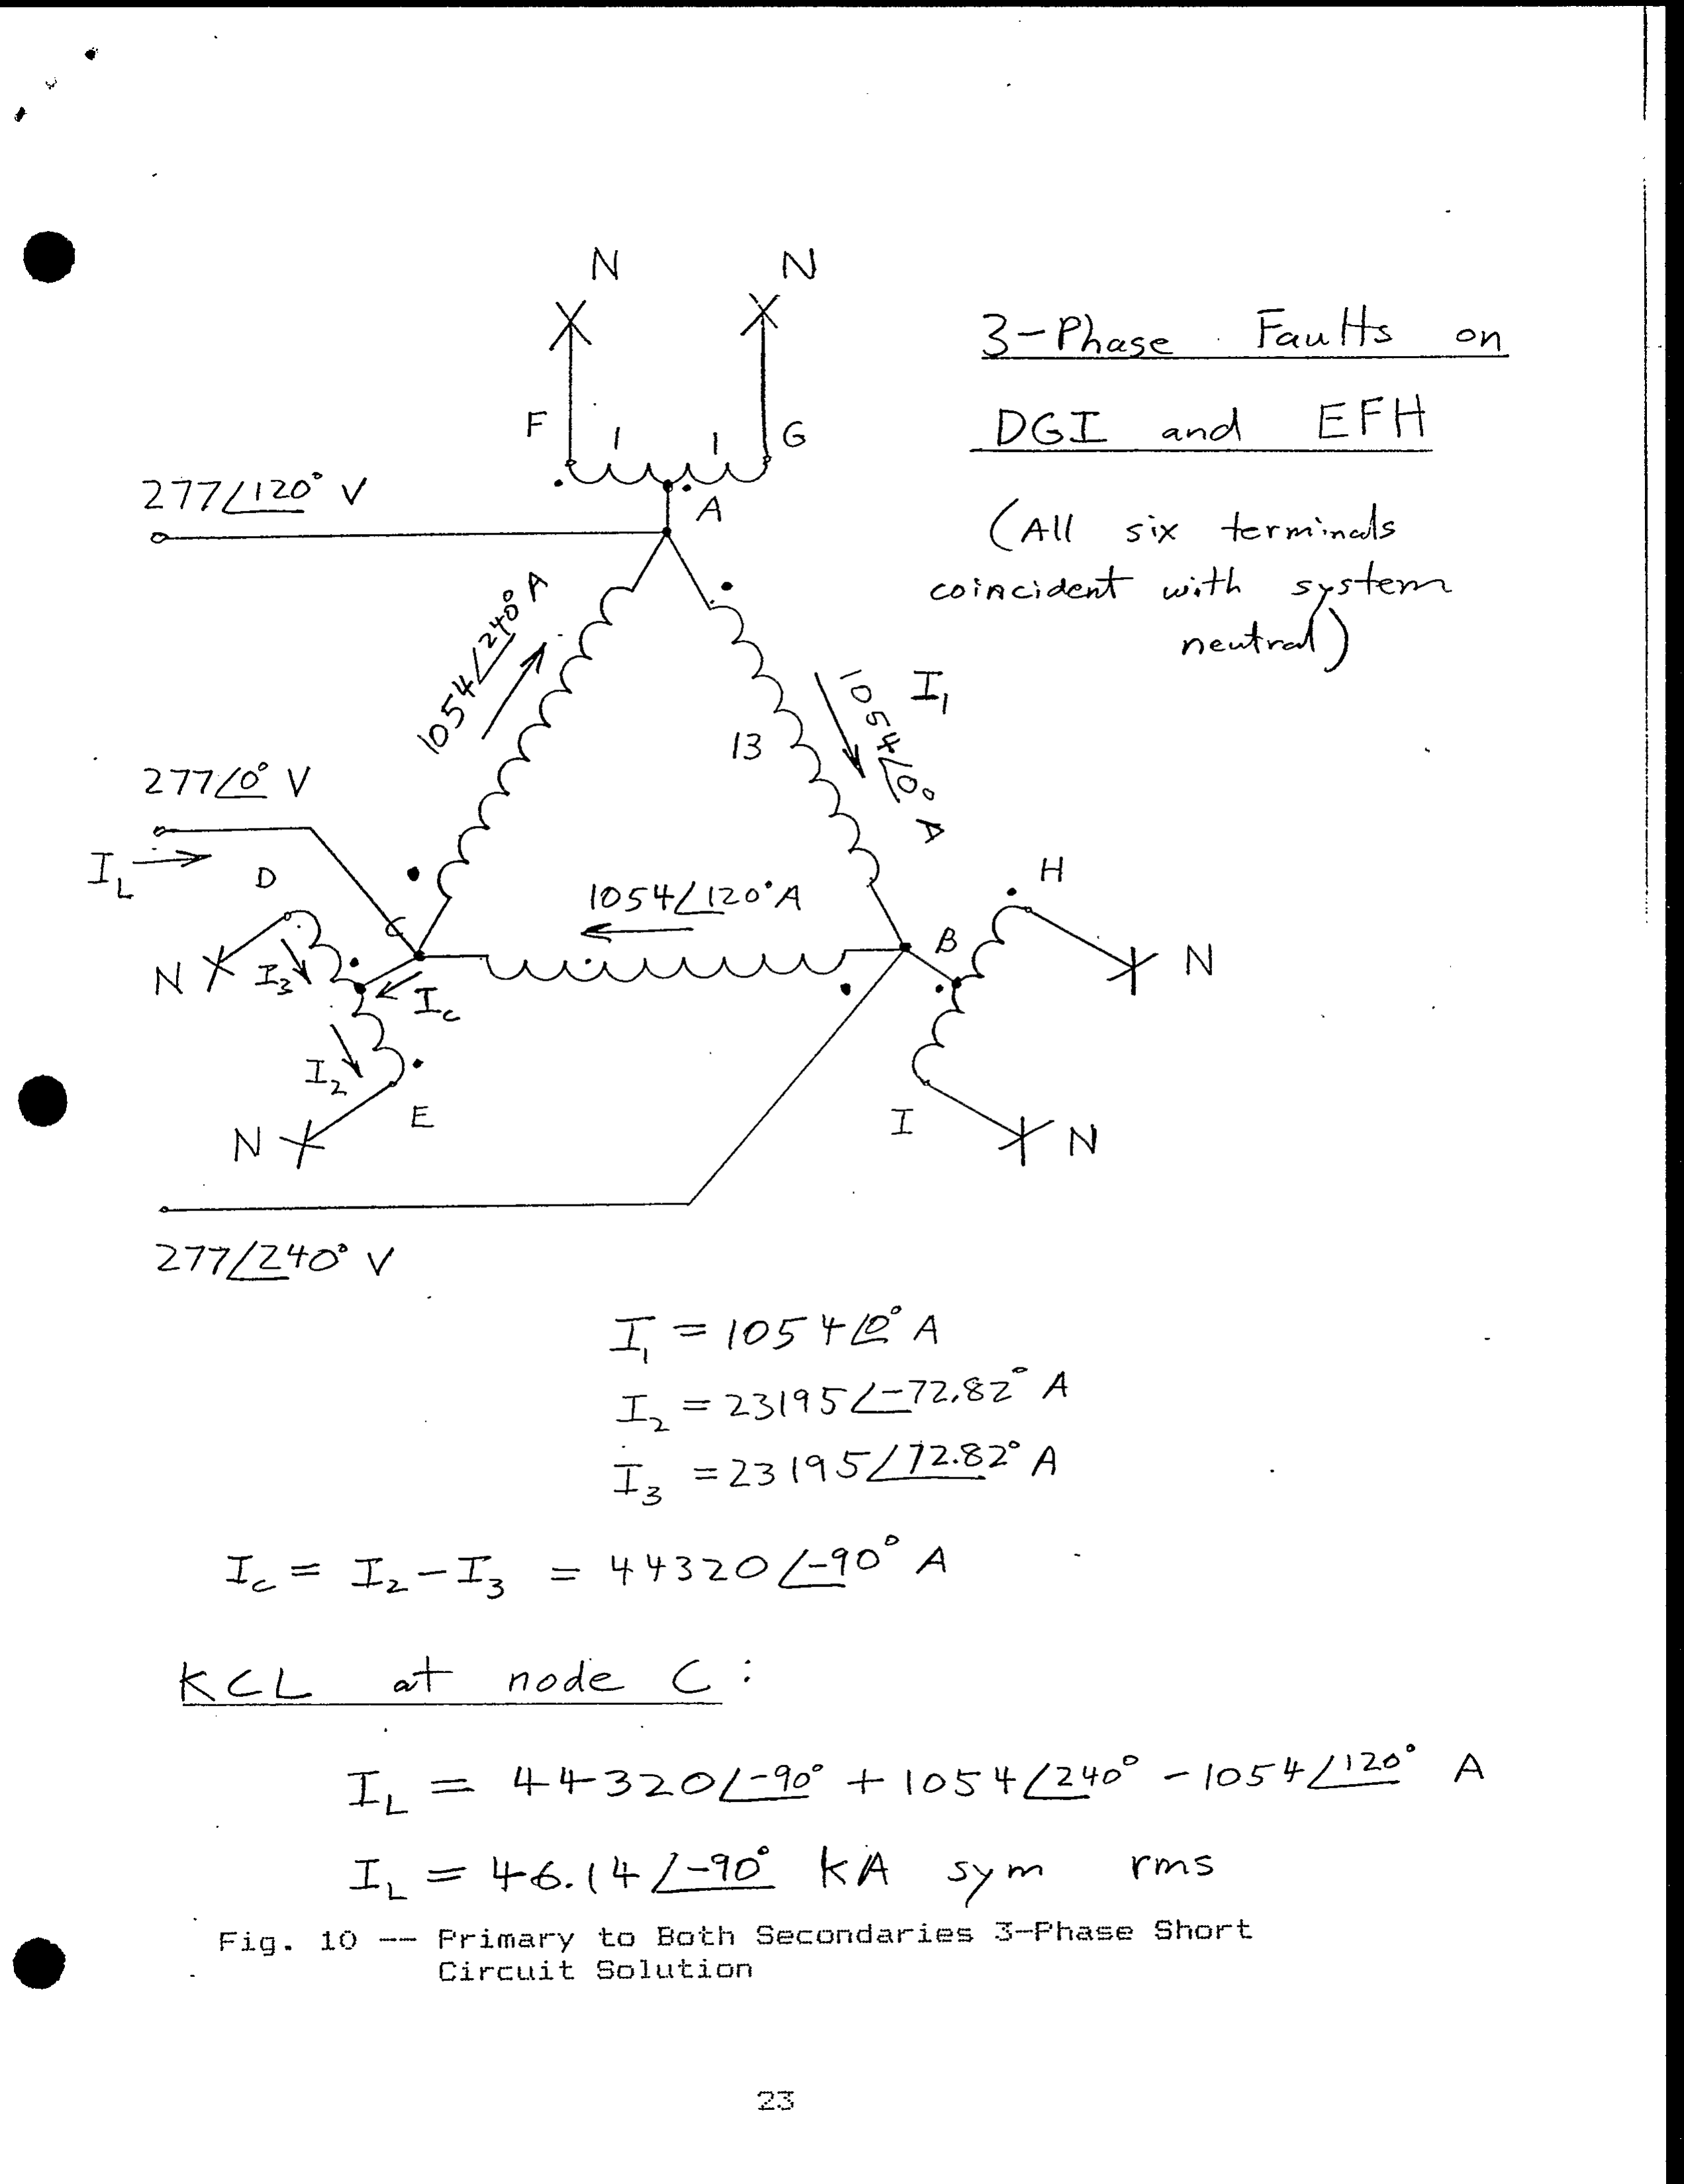 N N
3-Phase Faults on
F 1 1 G
DGI and EFH
277∠120° V
A
(All six terminals
coincident with system
neutral)
1054∠240° A
I₁
1054∠0° A
13
277∠0° V
I_L
D
H
1054∠120° A
C
B
N I₃
I_C
N
I₂
E
I
N
N
277∠240° V
I₁ = 1054∠0° A
I₂ = 23195∠-72.82° A
I₃ = 23195∠72.82° A
I_C = I₂ - I₃ = 44320∠-90° A
KCL at node C:
I_L = 44320∠-90° + 1054∠240° - 1054∠120° A
I_L = 46.14∠-90° kA sym rms
Fig. 10 -- Primary to Both Secondaries 3-Phase Short
Circuit Solution
23